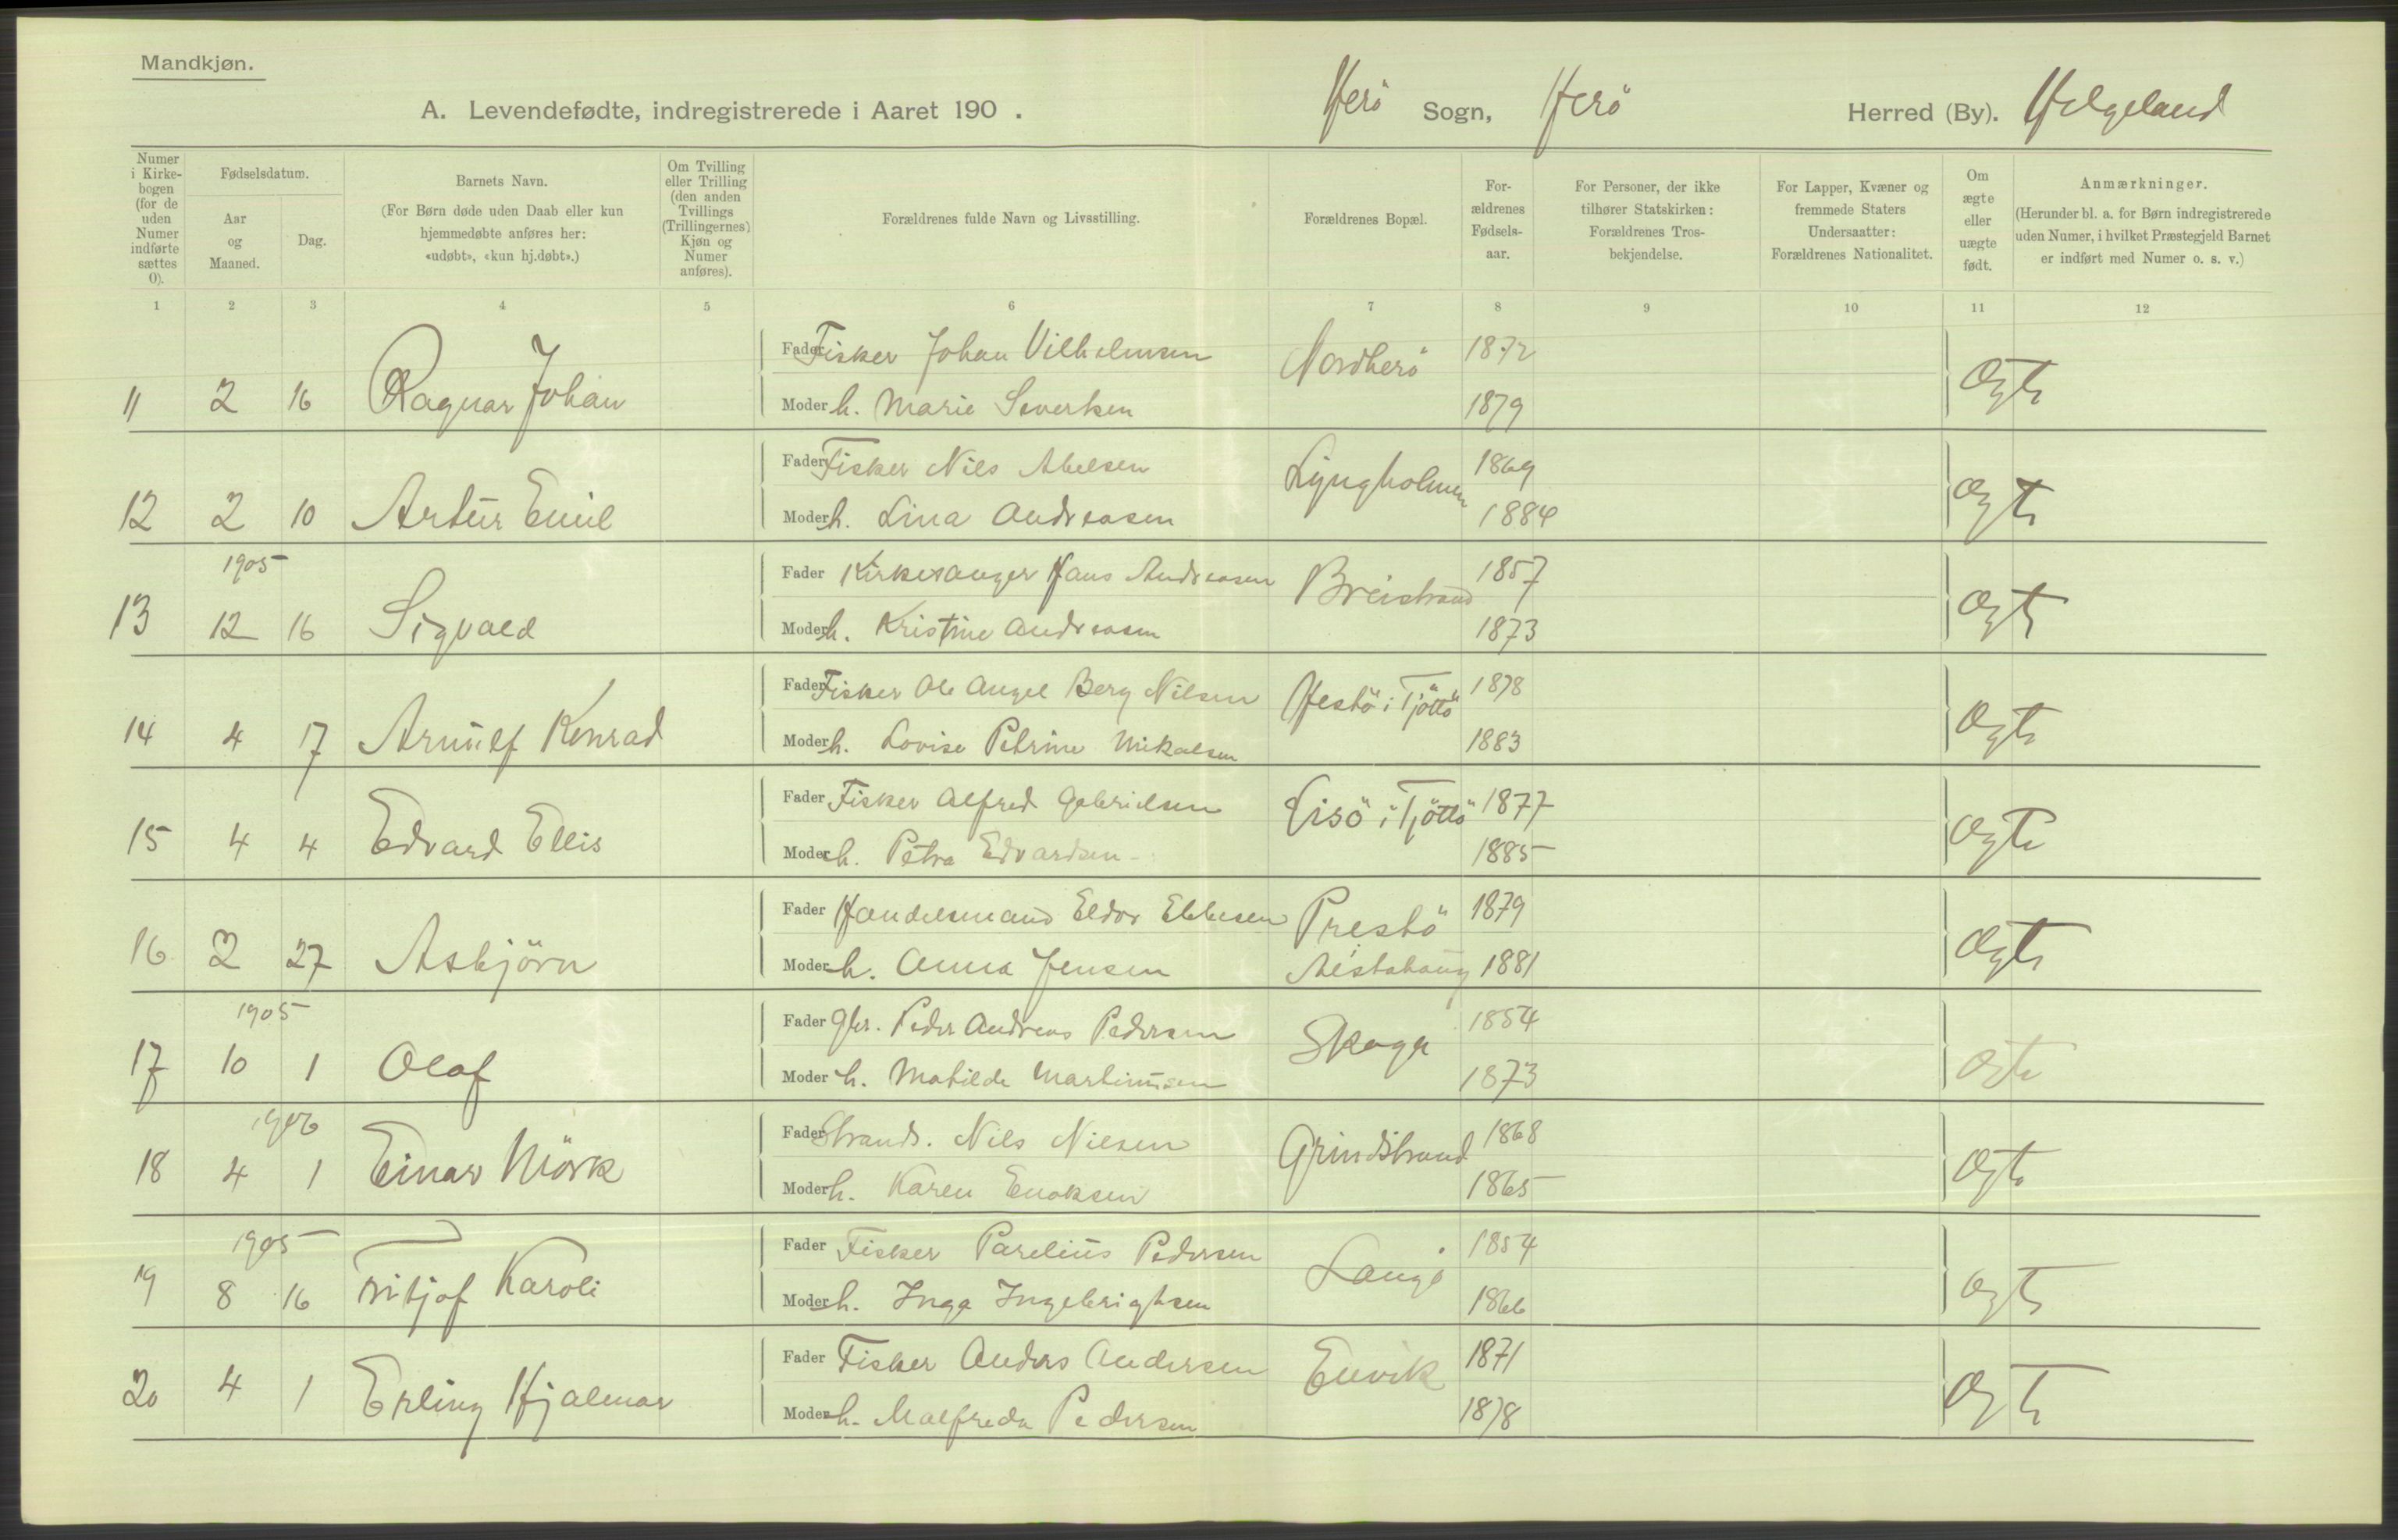 Mandkjøn.
A. Levendefødte, indregistrerede i Aaret 190 . Herö Sogn, Herö Herred (By). Helgeland
Numer i Kirke-bogen (for de uden Numer indførte sættes 0).
Fødselsdatum.
Aar og Maaned.
Dag.
Barnets Navn.
(For Børn døde uden Daab eller kun hjemmedøbte anføres her: «udøbt», «kun hj.døbt».)
Om Tvilling eller Trilling (den anden Tvillings (Trillingernes) Kjøn og Numer anføres).
Forældrenes fulde Navn og Livsstilling.
Forældrenes Bopæl.
For-ældrenes Fødsels-aar.
For Personer, der ikke tilhører Statskirken: Forældrenes Tros-bekjendelse.
For Lapper, Kvæner og fremmede Staters Undersaatter: Forældrenes Nationalitet.
Om ægte eller uægte født.
Anmærkninger.
(Herunder bl. a. for Børn indregistrerede uden Numer, i hvilket Præstegjeld Barnet er indført med Numer o. s. v.)
1 2 3 4 5 6 7 8 9 10 11 12
Fader Fisker Johan Vilhelmsen Nordherö 1872
11 2 16 Ragnar Johan Moder h. Marie Severksen 1879 Ægte
Fader Fisker Nils Abelsen Lyngholmen 1869
12 2 10 Artur Emil Moder h. Lina Andreasen 1884 Ægte
1905 Fader Kirkesanger Hans Andreasen Breistrand 1857
13 12 16 Sigvald Moder h. Kristine Andreasen 1873 Ægte
Fader Fisker Ole Angel Berg Nilsen Hestö i Tjöttö 1878
14 4 17 Arnulf Konrad Moder h. Lovise Petrine Mikalsen 1883 Ægte
Fader Fisker Alfred Gabrielsen i Tjöttö 1877
15 4 4 Edvard Ellis Moder h. Petra Edvardsen 1885 Ægte
Fader Handelsmand Eldor Ebbesen Prestö 1879
16 2 27 Asbjörn Moder h. Anna Jensen Alstahoug 1881 Ægte
1905 Fader Gbr. Peder Andreas Pedersen Skoga 1854
17 10 1 Olaf Moder h. Matilde Martinusen 1873 Ægte
1906 Fader Strands. Nils Nilsen Grindstrand 1868
18 4 1 Einar Mörk Moder h. Karen Enoksen 1865 Ægte
1905 Fader Fisker Parelius Pedersen 1854
19 8 16 Fritjof Karoli Moder h. Inga Ingebrigtsen 1866 Ægte
Fader Fisker Anders Andersen Envik 1871
20 4 1 Erling Hjalmar Moder h. Malfreda Pedersen 1878 Ægte